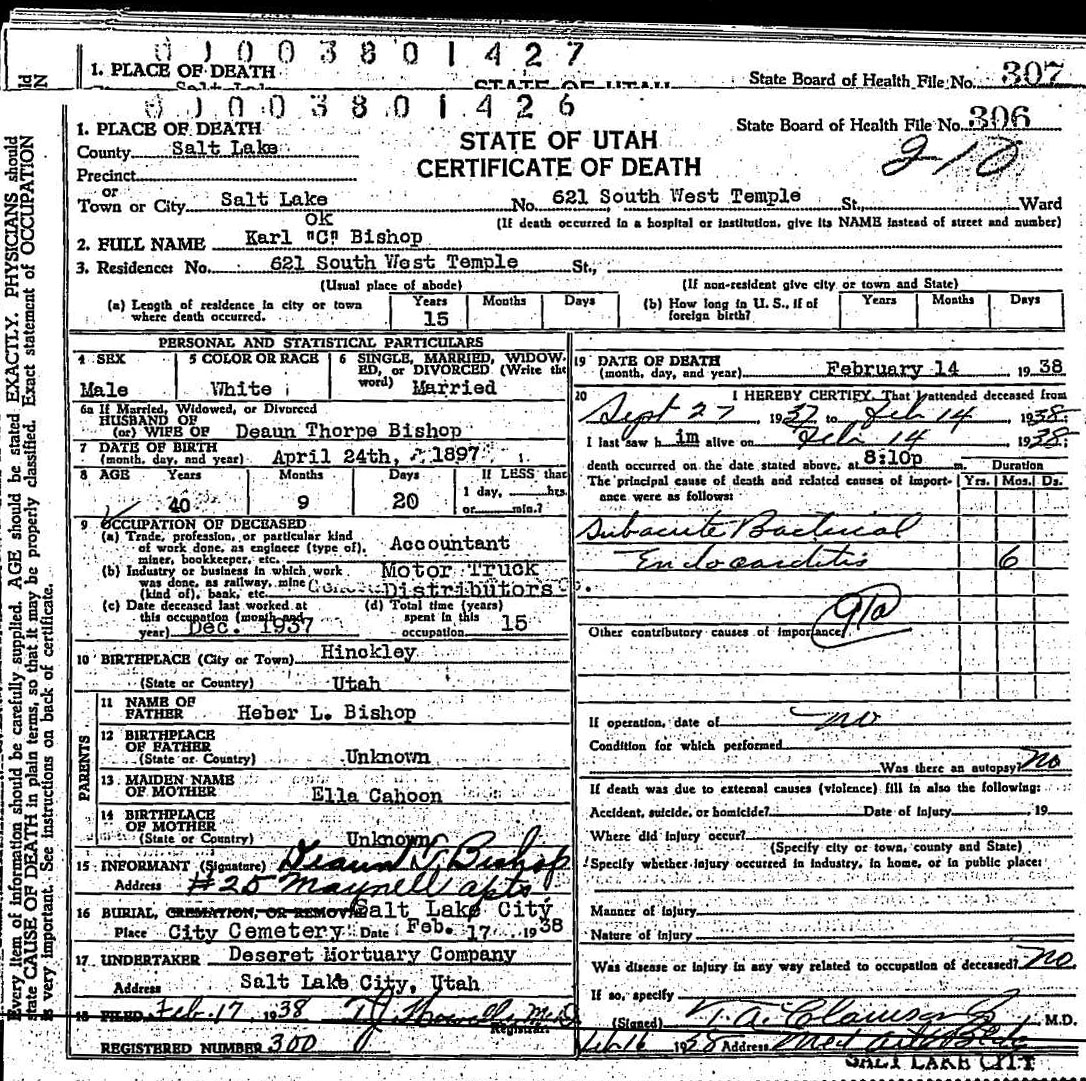 0 J 0 0 3 8 0 1 4 2 7
1. PLACE OF DEATH
State Board of Health File No. 307
0 J 0 0 3 8 0 1 4 2 6
1. PLACE OF DEATH
STATE OF UTAH
State Board of Health File No. 306
County Salt Lake
CERTIFICATE OF DEATH
210
Precinct
or
Town or City Salt Lake No. 621 South West Temple St. Ward
ok (If death occurred in a hospital or institution, give its NAME instead of street and number)
2. FULL NAME Karl "C" Bishop
3. Residence: No. 621 South West Temple St.,
(Usual place of abode) (If non-resident give city or town and State)
(a) Length of residence in city or town where death occurred. Years 15 Months Days
(b) How long in U. S., if of foreign birth? Years Months Days
PERSONAL AND STATISTICAL PARTICULARS
4 SEX Male
5 COLOR OR RACE White
6 SINGLE, MARRIED, WIDOWED, or DIVORCED (Write the word) Married
6a If Married, Widowed, or Divorced
HUSBAND OF
(or) WIFE OF Deaun Thorpe Bishop
7 DATE OF BIRTH
(month, day, and year) April 24th, 1897
8 AGE Years Months Days If LESS that
40 9 20 1 day, hrs.
or min.?
9 OCCUPATION OF DECEASED
(a) Trade, profession, or particular kind
of work done, as engineer (type of),
miner, bookkeeper, etc. Accountant
(b) Industry or business in which work
was done, as railway, mine
(kind of), bank, etc. Motor Truck Distributors
(c) Date deceased last worked at
this occupation (month and
year) Dec. 1937
(d) Total time (years)
spent in this
occupation 15
10 BIRTHPLACE (City or Town) Hinckley
(State or Country) Utah
PARENTS
11 NAME OF
FATHER Heber L. Bishop
12 BIRTHPLACE
OF FATHER
(State or Country) Unknown
13 MAIDEN NAME
OF MOTHER Ella Cahoon
14 BIRTHPLACE
OF MOTHER
(State or Country) Unknown
15 INFORMANT (Signature) Deaun T. Bishop
Address #25 Maynell apts
16 BURIAL, CREMATION, OR REMOVAL Salt Lake City
Place City Cemetery Date Feb. 17 1938
17 UNDERTAKER Deseret Mortuary Company
Address Salt Lake City, Utah
18 FILED Feb. 17 1938
Registrar
REGISTERED NUMBER 300
19 DATE OF DEATH
(month, day, and year) February 14 1938
20 I HEREBY CERTIFY, That I attended deceased from
Sept 27, 1937 to Feb 14, 1938:
I last saw him alive on Feb 14 1938:
death occurred on the date stated above, at 8:10p m. Duration
The principal cause of death and related causes of importance were as follows: Yrs. Mos. Ds.
Subacute Bacterial
Endocarditis 6
91a
Other contributory causes of importance
If operation, date of no
Condition for which performed
Was there an autopsy? No
If death was due to external causes (violence) fill in also the following:
Accident, suicide, or homicide? Date of injury , 19
Where did injury occur?
(Specify city or town, county and State)
Specify whether injury occurred in industry, in home, or in public place:
Manner of injury
Nature of injury
Was disease or injury in any way related to occupation of deceased? No.
If so, specify
(Signed) T. A. Clawson Jr M.D.
Feb 16 1938 Address Med Arts Bldg
SALT LAKE CITY
Every item of information should be carefully supplied. AGE should be stated EXACTLY. PHYSICIANS should
state CAUSE OF DEATH in plain terms, so that it may be properly classified. Exact statement of OCCUPATION
is very important. See instructions on back of certificate.